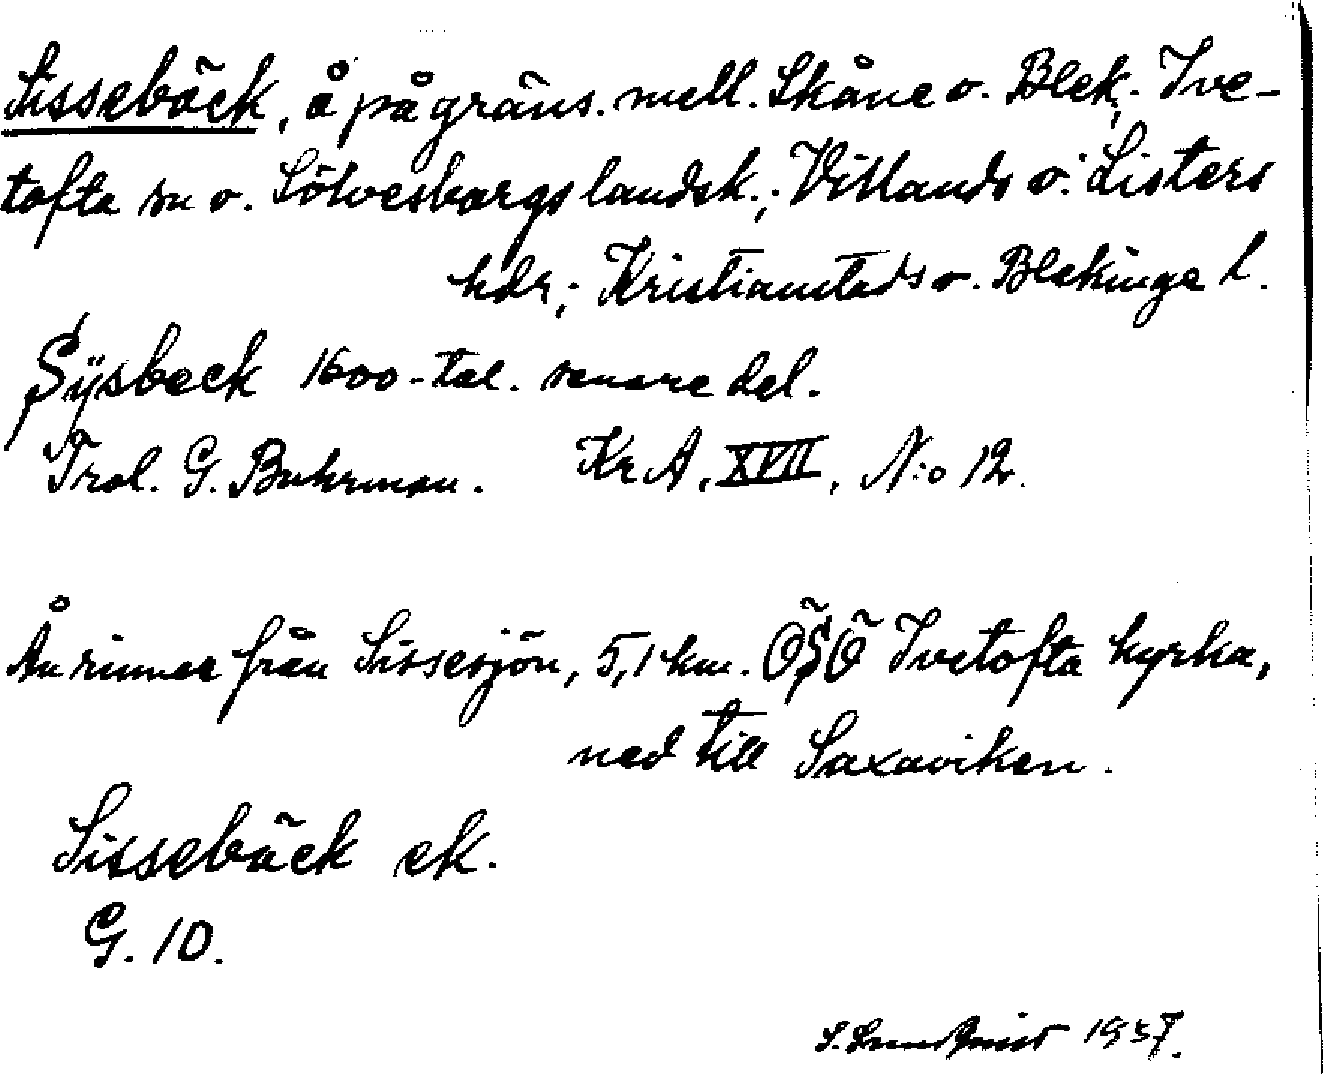 Sissebäck, å på gräns. mell. Skåne o. Blek.; Ive-
tofta sn o. Sölvesborgs landsk.; Villands o. Listers
hdr; Kristianstads o. Blekinge l.
Sÿsbeck 1600-tal. senare del.
Trol. G. Buhrman. Kr A. XVII, N:o 12.
Ån rinner från Sissesjön, 5,1 km. ÖSÖ Ivetofta kyrka,
ned till Saxaviken.
Sissebäck ek.
G. 10.
S. Lundquist 1937.